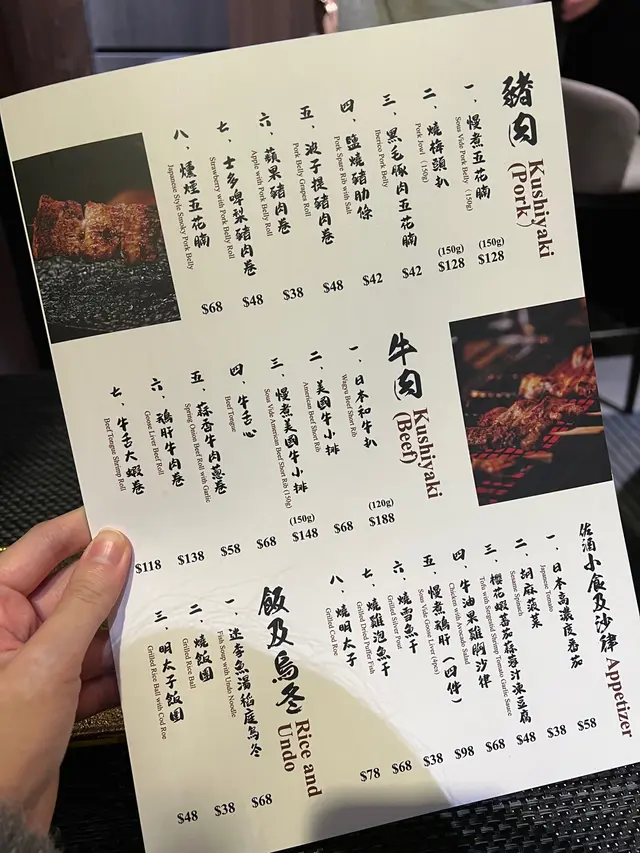 豬肉
Kushiyaki
(Pork)
一、慢煮五花腩
Sous Vide Pork Belly (150g)
(150g)
$128
二、燒梅頭扒
Pork Jowl (150g)
(150g)
$128
三、黑毛豚肉五花腩
Iberico Pork Belly
$42
四、鹽燒豬肋條
Pork Spare Rib with Salt
$42
五、波子提豬肉卷
Pork Belly Grapes Roll
$48
六、蘋果豬肉卷
Apple with Pork Belly Roll
$38
七、士多啤梨豬肉卷
Strawberry with Pork Belly Roll
$48
八、燻煙五花腩
Japanese Style Smoky Pork Belly
$68
牛肉
Kushiyaki
(Beef)
一、日本和牛扒
Wagyu Beef Short Rib
(120g)
$188
二、美國牛小排
American Beef Short Rib
$68
三、慢煮美國牛小排
Sous Vide American Beef Short Rib (150g)
(150g)
$148
四、牛舌心
Beef Tongue
$68
五、蒜香牛肉蔥卷
Spring Onion Beef Roll with Garlic
$58
六、鵝肝牛肉卷
Goose Liver Beef Roll
$138
七、牛舌大蝦卷
Beef Tongue Shrimp Roll
$118
佐酒小食及沙律 Appetizer
一、日本高濃度番茄
Japanese Tomato
$58
二、胡麻菠菜
Sesame Spinach
$38
三、櫻花蝦番茄蒜蓉汁凍豆腐
Tofu with Sergestid Shrimp Tomato Garlic Sauce
$48
四、牛油果雞胸沙律
Chicken with Avocado Salad
$68
五、慢煮鵝肝（四件）
Sous Vide Goose Liver (4pcs)
$98
六、燒雪魚干
Grilled Silver Pout
$38
七、燒雞泡魚干
Grilled Dried Puffer Fish
$68
八、燒明太子
Grilled Cod Roe
$78
飯及烏冬
Rice and
Undo
一、逹李魚湯稻庭烏冬
Fish Soup with Undo Noodle
$68
二、燒飯團
Grilled Rice Ball
$38
三、明太子飯團
Grilled Rice Ball with Cod Roe
$48